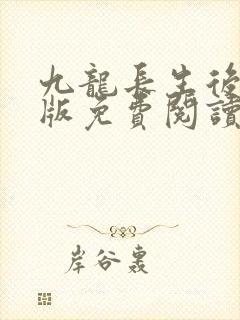 九龍長生後
版免費閱讀
岸谷轟